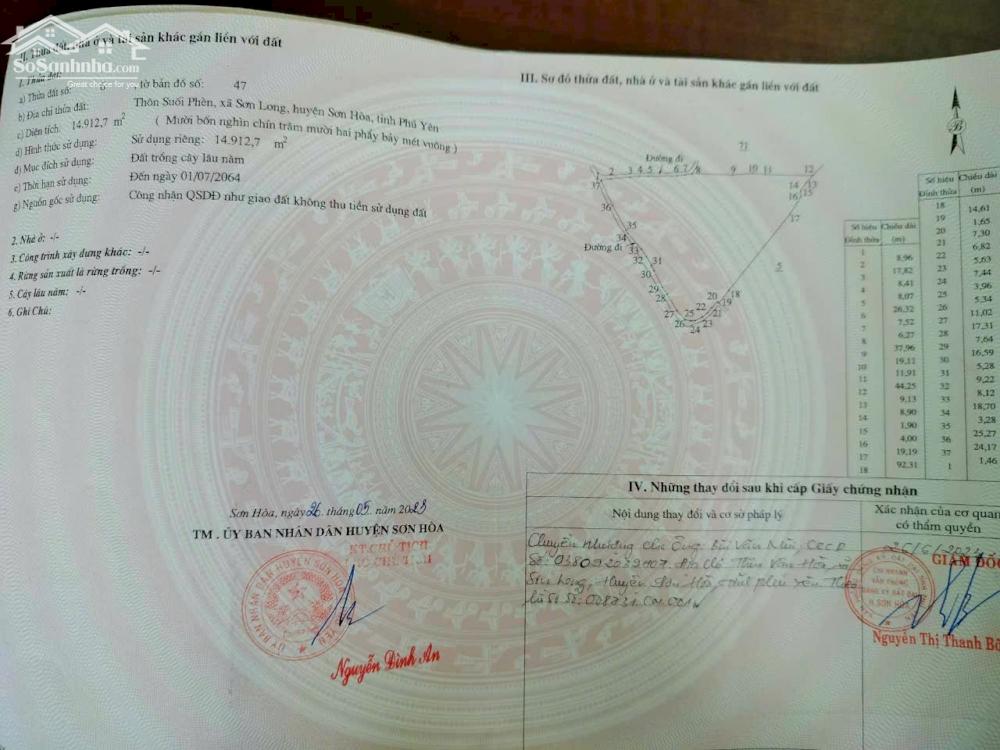 SoSanhnha.com
Great choice for you
II. Thửa đất, nhà ở và tài sản khác gắn liền với đất
1. Thửa đất:
a) Thửa đất số: tờ bản đồ số: 47
b) Địa chỉ thửa đất: Thôn Suối Phèn, xã Sơn Long, huyện Sơn Hòa, tỉnh Phú Yên
c) Diện tích: 14.912,7 m²
( Mười bốn nghìn chín trăm mười hai phẩy bảy mét vuông )
d) Hình thức sử dụng: Sử dụng riêng: 14.912,7 m²
đ) Mục đích sử dụng: Đất trồng cây lâu năm
e) Thời hạn sử dụng: Đến ngày 01/07/2064
g) Nguồn gốc sử dụng: Công nhận QSDĐ như giao đất không thu tiền sử dụng đất
2. Nhà ở: -/-
3. Công trình xây dựng khác: -/-
4. Rừng sản xuất là rừng trồng: -/-
5. Cây lâu năm: -/-
6. Ghi Chú:
Sơn Hòa, ngày 26 tháng 05 năm 2023
TM. ỦY BAN NHÂN DÂN HUYỆN SƠN HÒA
KT.CHỦ TỊCH
PHÓ CHỦ TỊCH
Nguyễn Đình An
III. Sơ đồ thửa đất, nhà ở và tài sản khác gắn liền với đất
B
71
Đường đi
1 2 3 4 5 6 7 8 9 10 11 12
37 14 13
16 15
36 17
35
34
Đường đi 33
32 31 5
30
29
28 20 18
22 19
27 25 21
26 23
24
Số hiệu Đỉnh thửa Chiều dài (m)
1
8,96
2
17,82
3
8,41
4
8,07
5
26,32
6
7,52
7
6,27
8
37,96
9
19,11
10
11,91
11
44,25
12
9,13
13
8,90
14
1,90
15
4,00
16
19,19
17
92,31
18
Số hiệu Đỉnh thửa Chiều dài (m)
18
14,61
19
1,65
20
7,30
21
6,82
22
5,63
23
7,44
24
3,96
25
5,34
26
11,02
27
17,31
28
7,64
29
16,59
30
5,28
31
9,22
32
8,12
33
18,70
34
3,28
35
25,27
36
24,17
37
1,46
1
IV. Những thay đổi sau khi cấp Giấy chứng nhận
Nội dung thay đổi và cơ sở pháp lý
Xác nhận của cơ quan
có thẩm quyền
Chuyển nhượng cho Ông Bùi Văn CCCD
Số: Địa chỉ Thôn Vân Hòa, xã
Sơn Long, Huyện Sơn Hòa, tỉnh Phú Yên Theo
hồ sơ số:
GIÁM ĐỐC
Nguyễn Thị Thanh